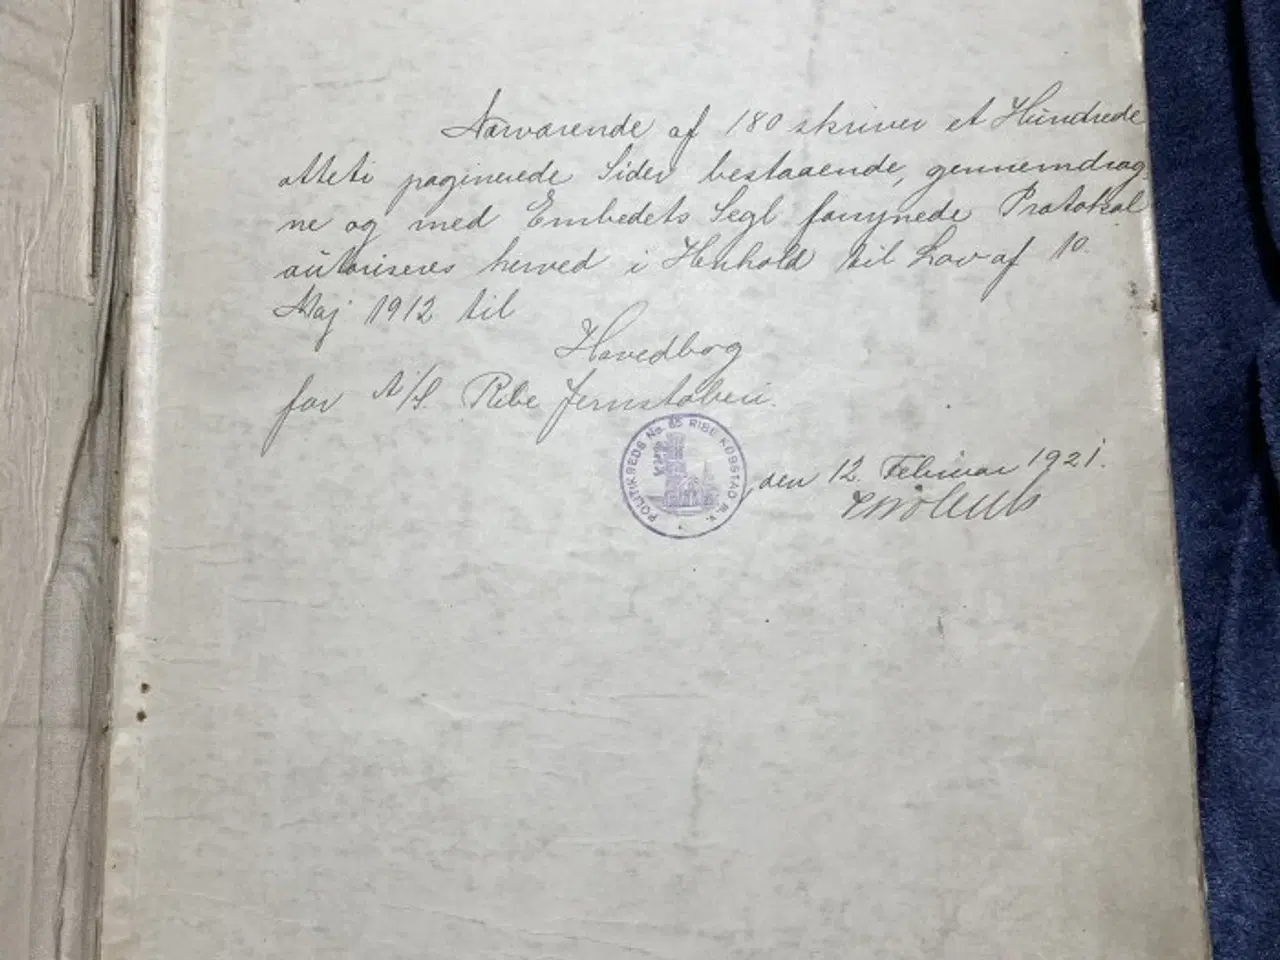 Nærværende af 180 skriver et Hundrede
otteti paginerede Sider bestaaende, gennemdrag
ne og med Embedets Segl forsynede Protokol
autoriseres herved i Henhold til Lov af 10.
Maj 1912 til
Hovedbog
for A/S. Ribe Jernstøberi.
POLITIKREDS No. 65 RIBE KØBSTAD M. V.
, den 12. Februar 1921.